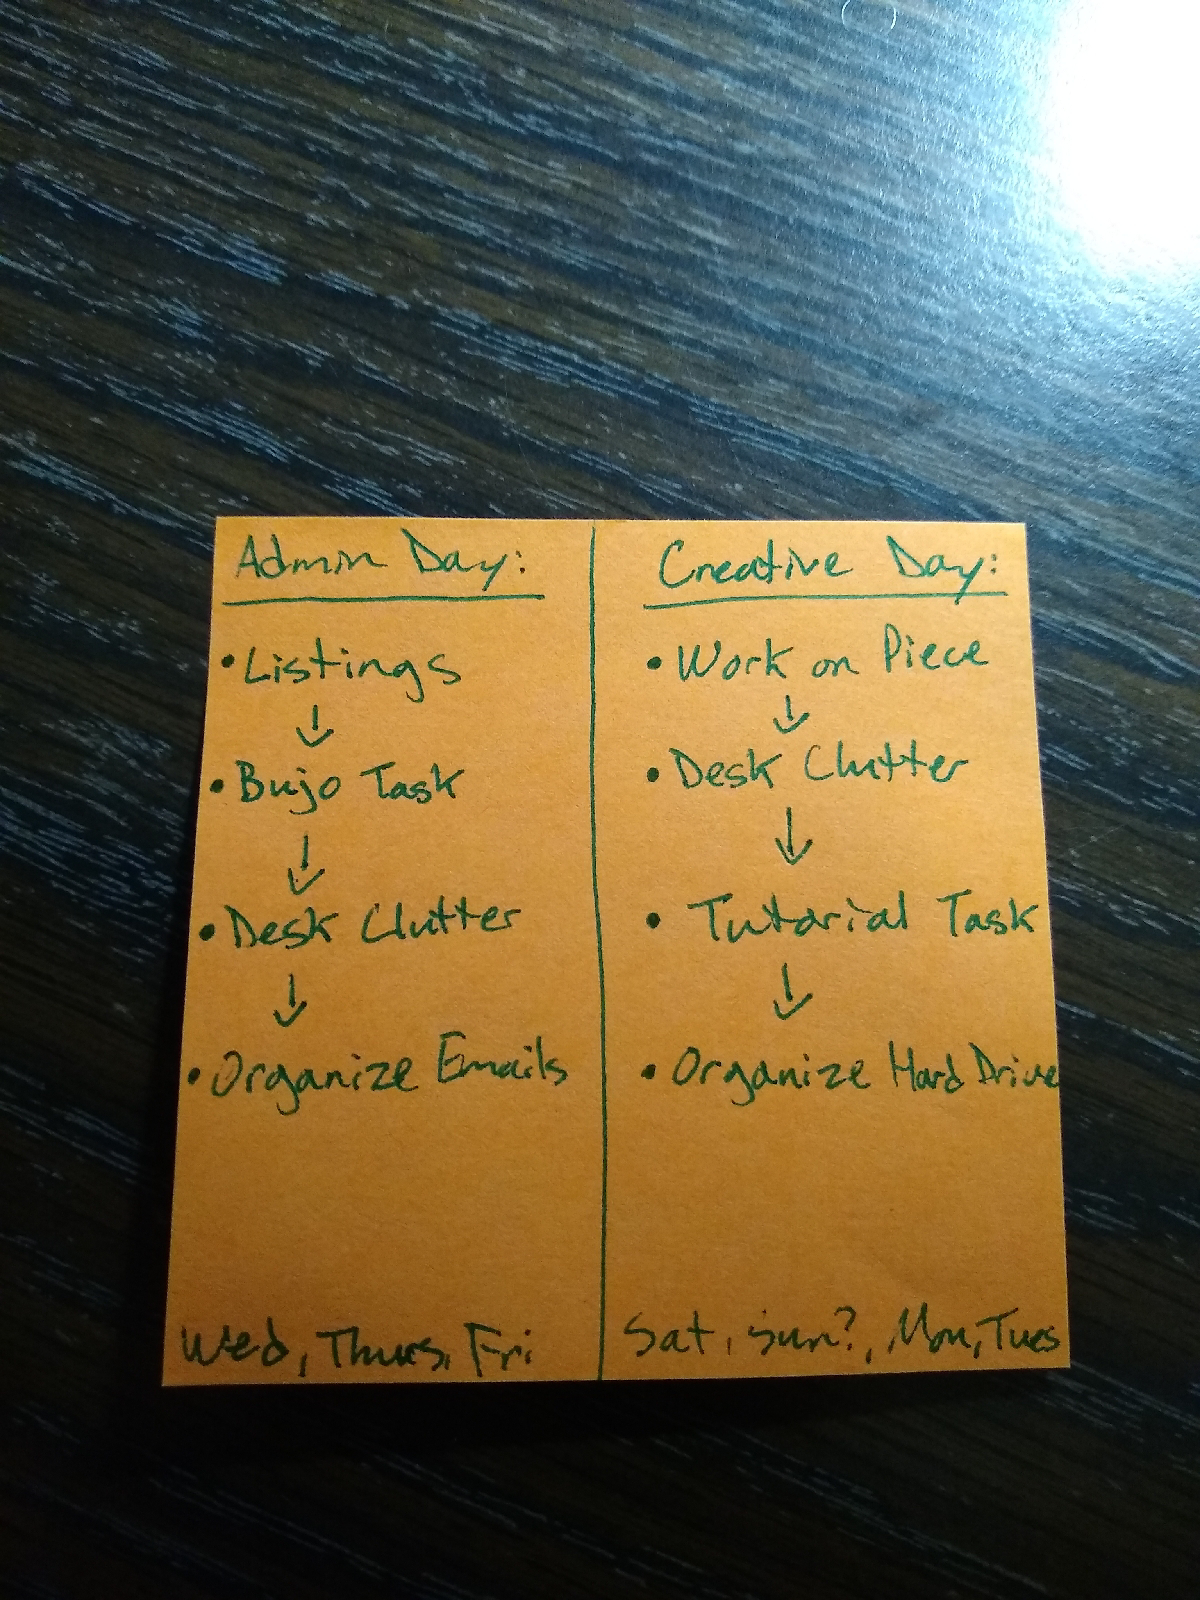 Admin Day:
• Listings
↓
• Bujo Task
↓
• Desk Clutter
↓
• Organize Emails
Wed, Thurs, Fri
Creative Day:
• Work on Piece
↓
• Desk Clutter
↓
• Tutorial Task
↓
• Organize Hard Drive
Sat, Sun?, Mon, Tues